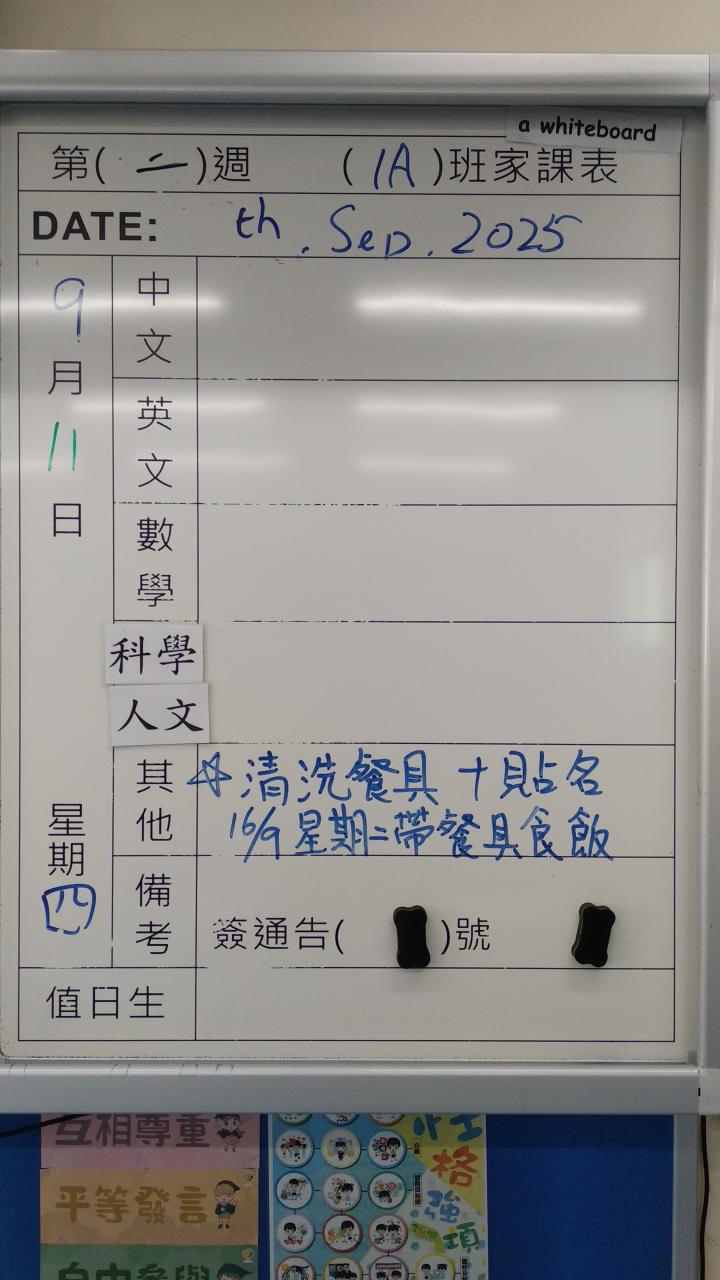 a whiteboard
第(二)週 (1A)班家課表
DATE: th. Sep. 2025
9月11日
星期四
中文
英文
數學
科學
人文
其他
☆清洗餐具 + 貼名
16/9 星期二帶餐具食飯
備考
簽通告( )號
值日生
互相尊重
平等發言
自由參與
性格強項